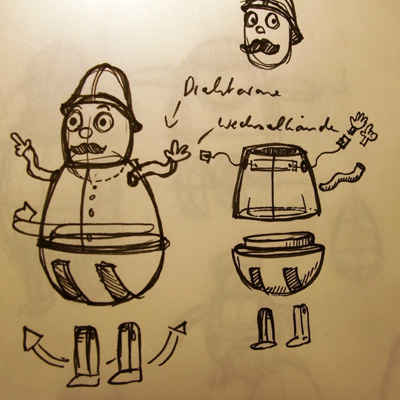 Drahtarme
Wechselhände